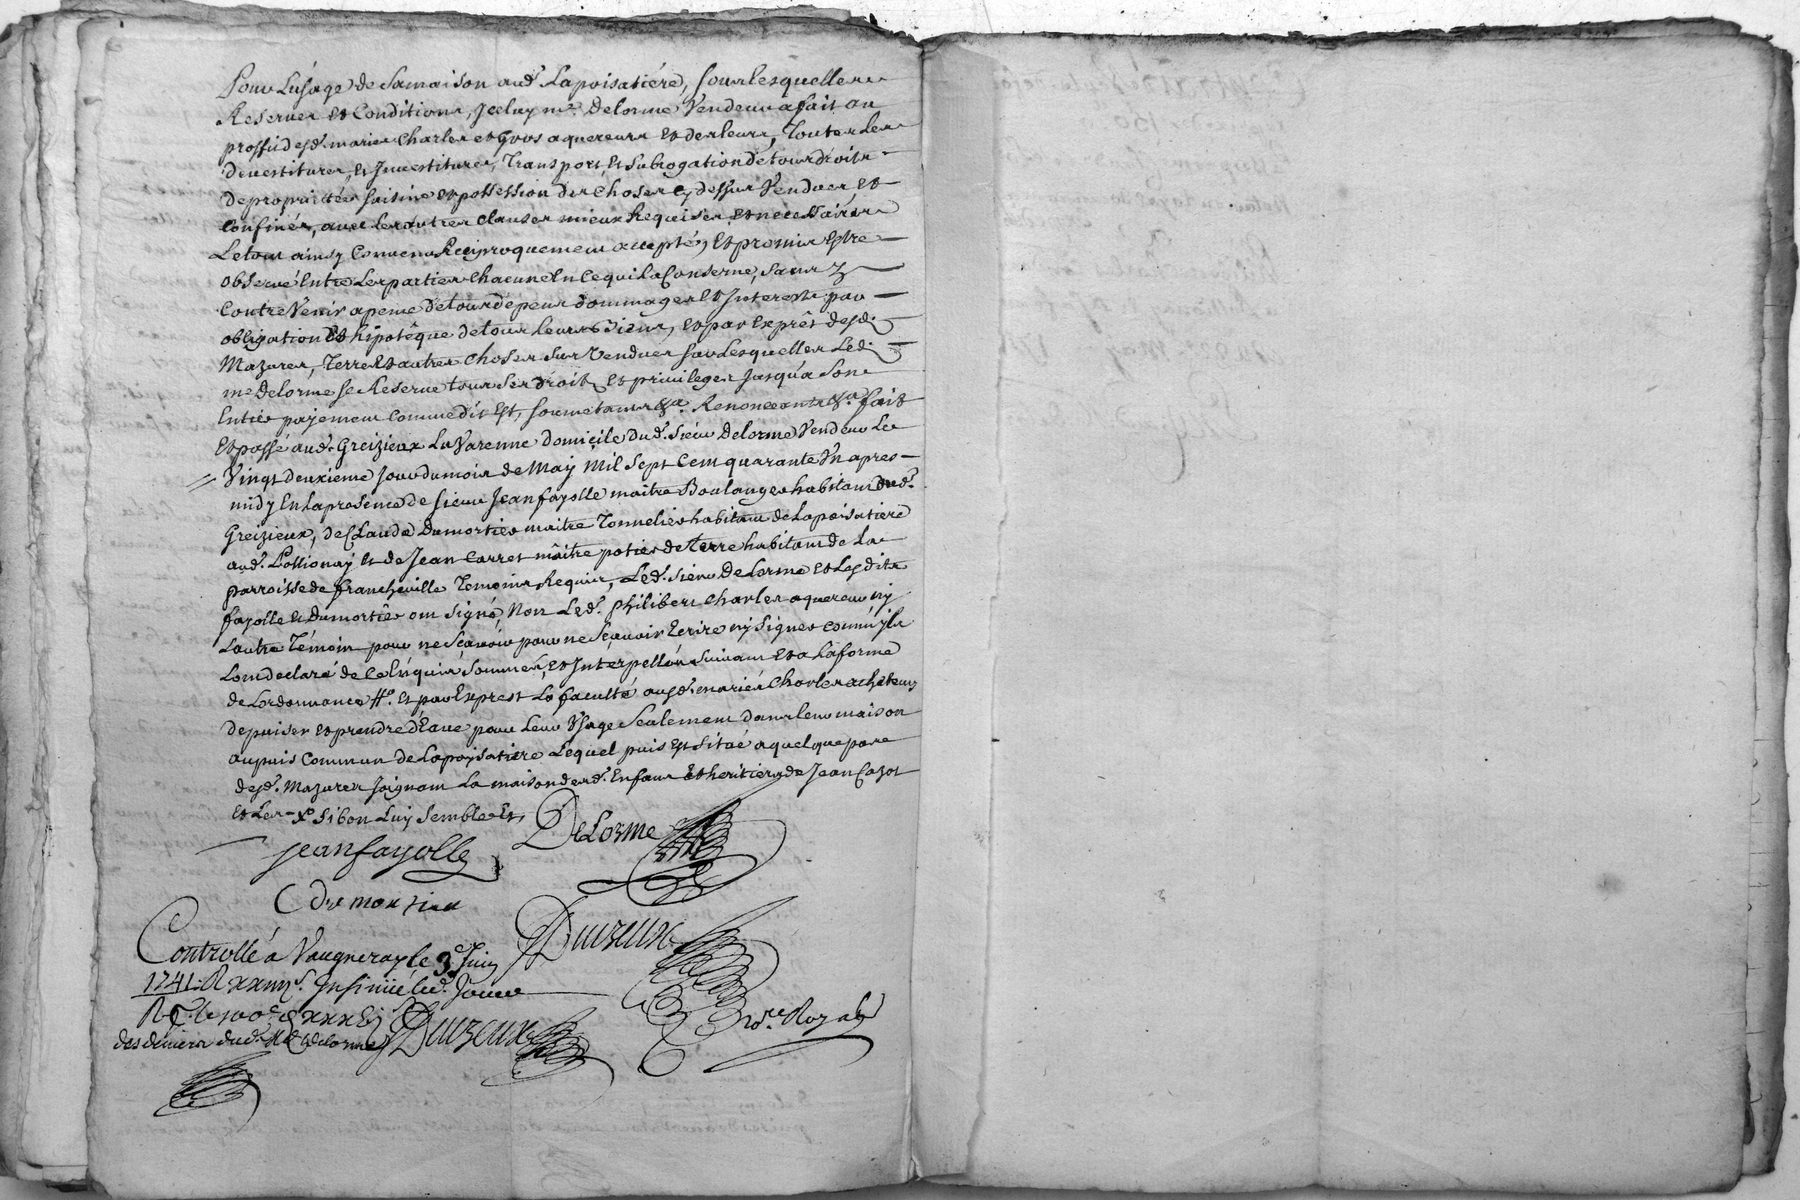 Pour Lusage de Samaison aud. Lapoisatiére, sous lesquelles
Reserves et Conditions, Jceluy me. Delorme Vendeur a fait au
proffit desd. mariés Charles et Gros aquereurs et des leurs, Toutes les
devestitures, et Jnvestitures, Transport, et subrogation de tous droits
de proprieté, saisine et possession des choses cy dessus Vendues et
Confinés, avec les autres clauses mieux Requises et necessaires
Le tout ainsy Convenu Reciproquement accepté, et promis Estre
observé Entre les parties chacune En Ce qui la Conserne, sans y
Contrevenir a peine de tous depens dommages et Jnterests par
obligation et hipotêque de tous leurs biens, et par Exprês desd.
Mazures, Terre et autres choses sus Vendues sur Lesquelles Led.
me. Delorme se Reserve tous ses droits et privileges Jusqu'a son
Entier payement comme dit Est, soumetans &a. Renonceants &a. fait
et passé aud. Greizieux La Varenne domicile dud. Sieur Delorme Vendeur Le
Vingt deuxieme Jour du mois de May Mil Sept Cent quarante Vn apres
midy En la presence de sieur Jean fayolle maitre Boulanger habitant dud.
Greizieux, de Claude Dumortier maitre Tonnelier habitant de Lapoisatiere
aud. Pollionay et de Jean Carret maitre potier de Terre habitant de La
parroisse de francheville Temoins Requis, Led. Sieur Delorme et Lesdits
fayolle et Dumortier ont signé, Non Led. philibert Charles aquereur ny
Lautre Témoin pour ne sçavoir pour ne sçavoir Ecrire ny signer comm'ils
Lont declaré de Ce Enquis Sommés, et Jnterpellés suivant et a La forme
de Lordonnance #. et par Exprest La faculté ausd. mariés Charles acheteurs
de puiser et prendre d'Eaue pour Leur Vsage Seulement dans leur maison
au puis Commun de Lapoysatiere Lequel puis Est Situé a quelque part
desd. Mazures Joignant La maison desd. Enfans et heritiers de Jean Cazot
et Les - Xe Si bon Luy Semble Et,
DeLorme
jean fayolle
C dumortier
Duizeux
Controllé á Vaugneray le 3e Juin
1741: R Insinüé led. Jour
Nore. Royal
des deniers dud. Me Delorme Duizeux